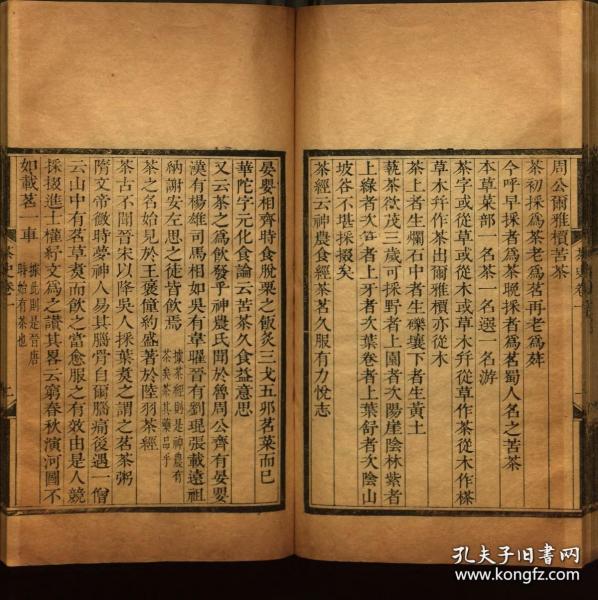 周公爾雅檟苦荼
茶初採爲茶老爲茗再老爲荈
今呼早採者爲茶晚採者爲茗蜀人名之苦荼
本草菜部一名荼一名選一名游
茶字或從草或從木或草木幷從草作茶從木作𣘻
草木幷作荼出爾雅檟亦從木
茶上者生爛石中者生礫壤下者生黃土
蓺茶欲茂三歲可採野者上園者次陽崖陰林紫者
上綠者次笋者上牙者次葉卷者上葉舒者次陰山
坡谷不堪採掇矣
茶經云神農食經茶茗久服有力悅志
晏嬰相齊時食脫粟之飯炙三戈五卵茗菜而已
華陀字元化食論云苦茶久食益意思
又云茶之爲飲發乎神農氏聞於魯周公齊有晏嬰
漢有楊雄司馬相如吳有韋曜晉有劉琨張載遠祖
納謝安左思之徒皆飲焉 據茶經則是神農有
茶矣茶其藥品乎
茶之名始見於王褒僮約盛著於陸羽茶經
茶古不聞晉宋以降吳人採葉煑之謂之茗茶粥
隋文帝微時夢神人易其腦骨自爾腦痛後遇一僧
云山中有茗草煑而飲之當愈服之有效由是人競
採掇進士權紓文爲之讚其畧云窮春秋演河圖不
如載茗一車 據此則是晉唐
時始有茶也
茶史卷一
二
孔夫子旧书网
www.kongfz.com